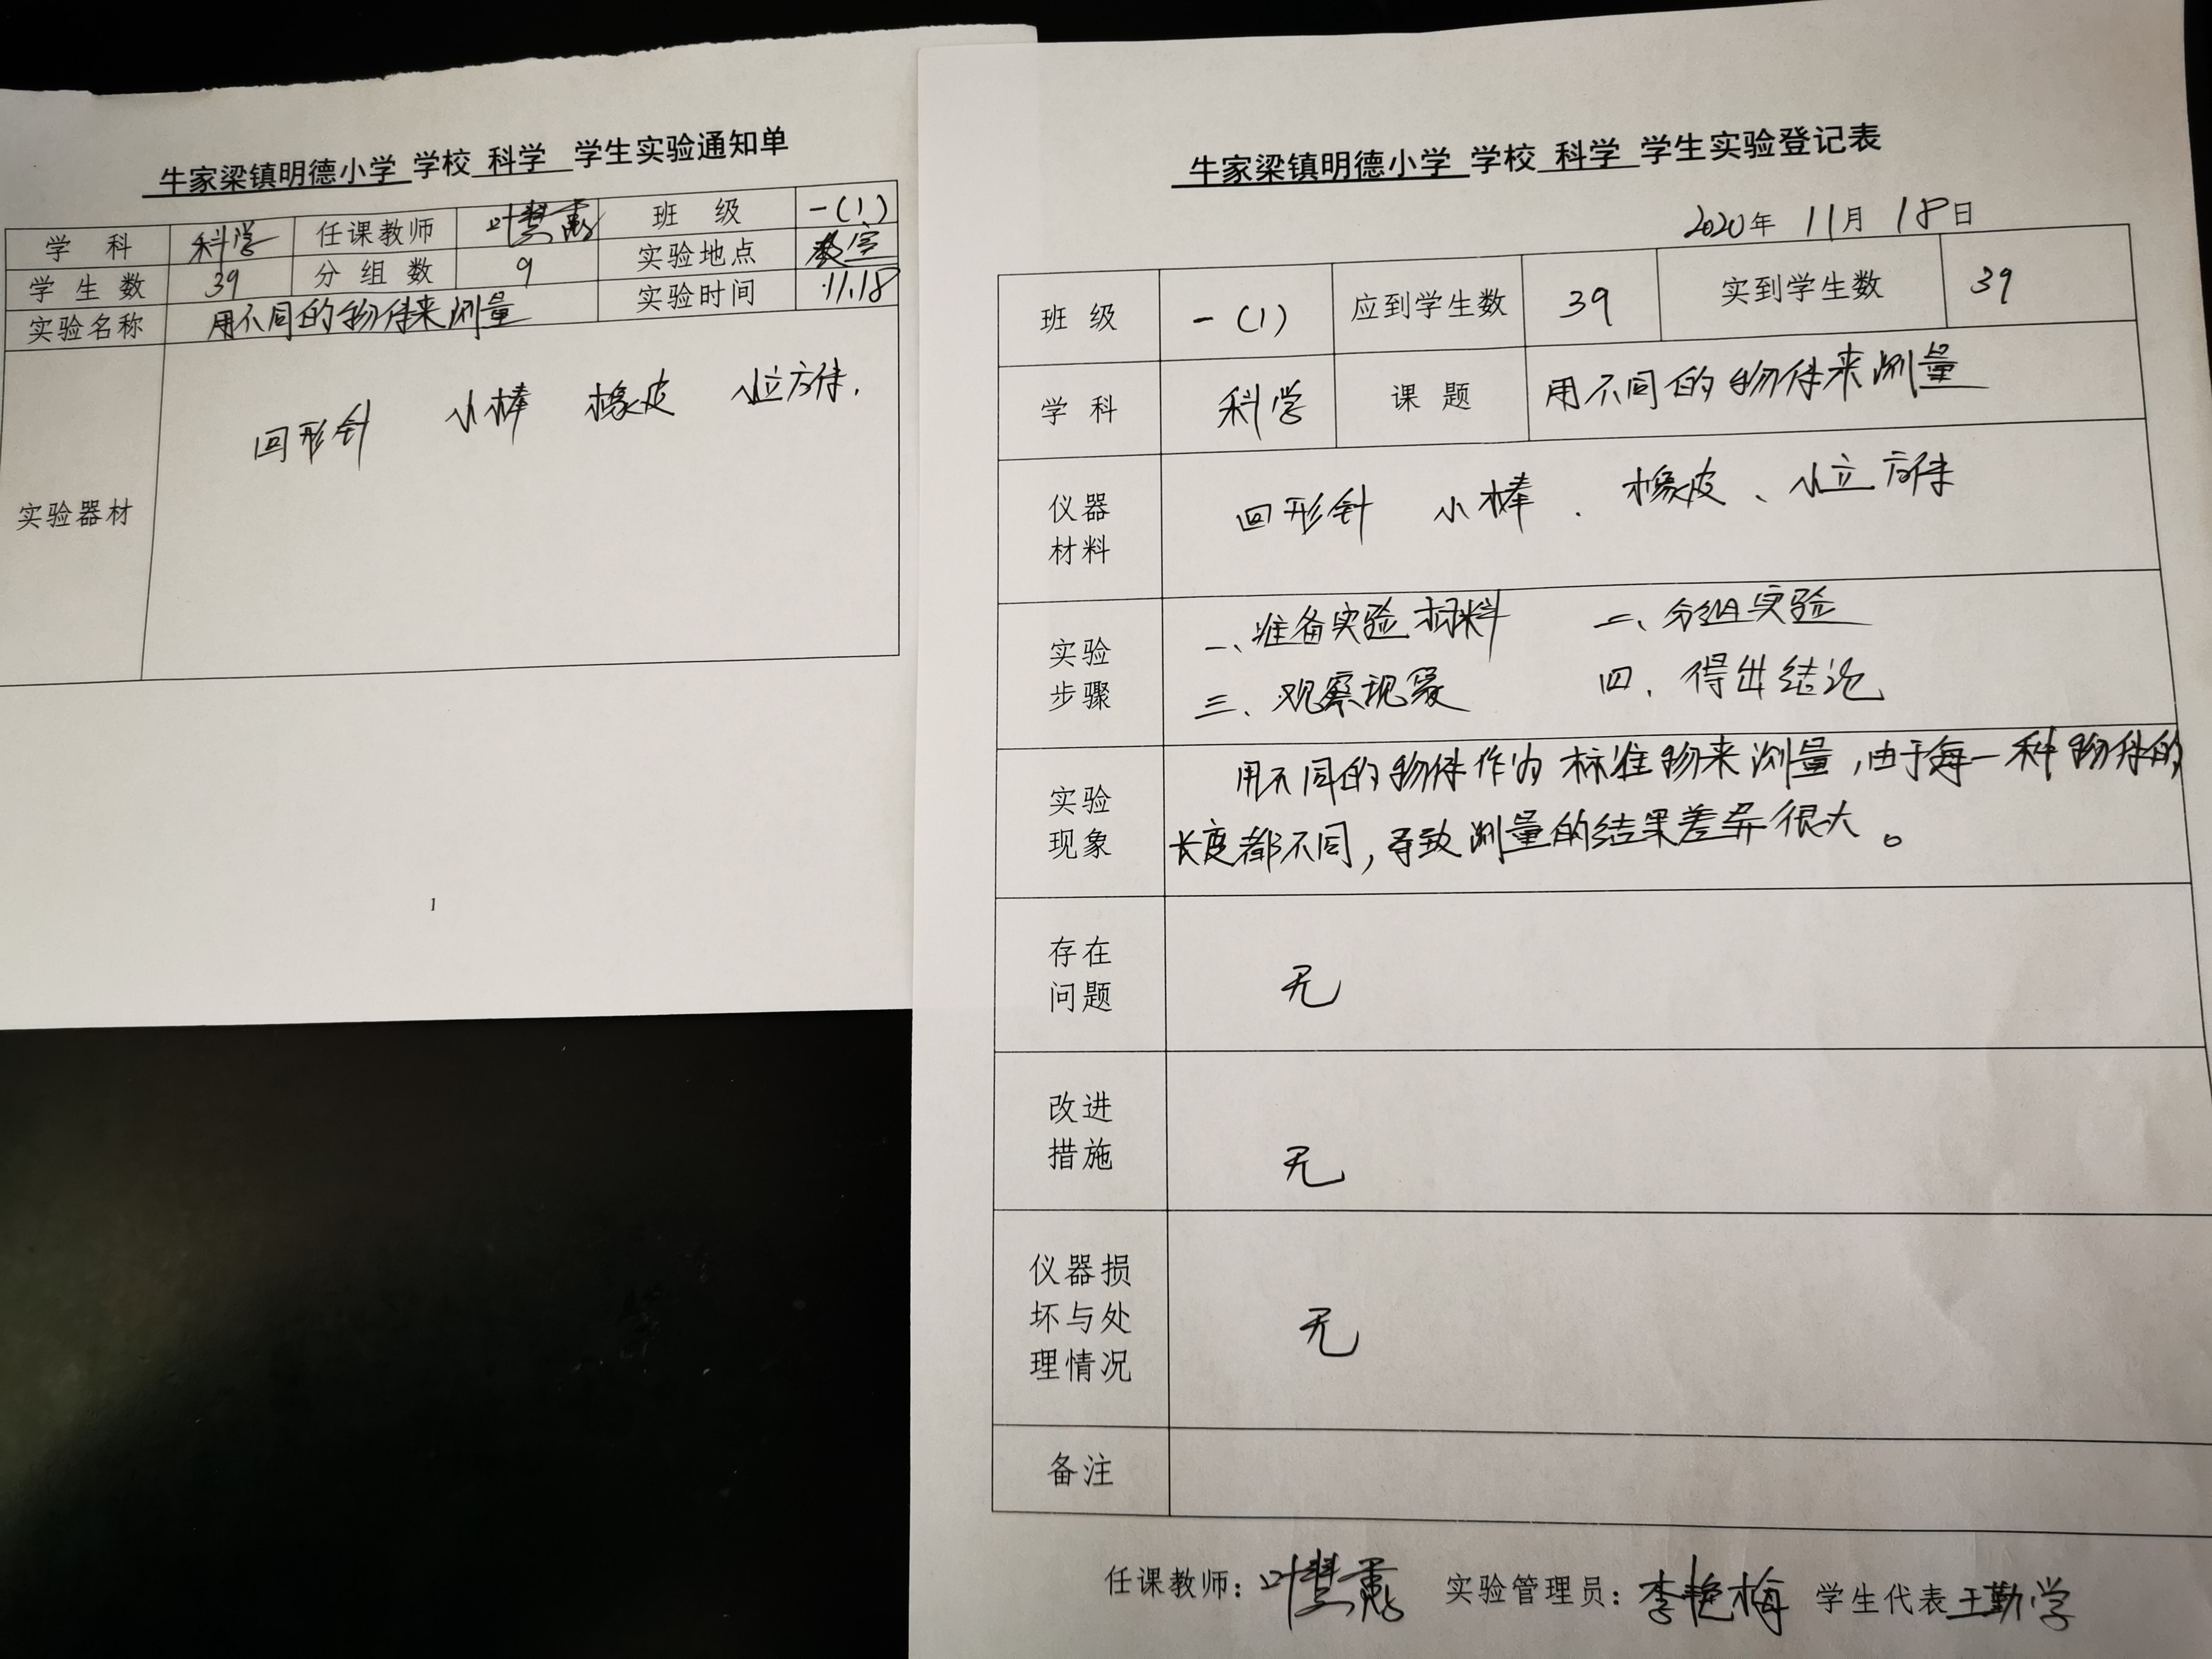 牛家梁镇明德小学 学校 科学 学生实验通知单
学 科 科学 任课教师 叶慧 班 级 一(1)
学 生 数 39 分 组 数 9 实验地点 教室
实验名称 用不同的物体来测量 实验时间 11.18
实验器材 回形针 小棒 橡皮 小立方体.
1
牛家梁镇明德小学 学校 科学 学生实验登记表
2020年 11月 18日
班 级 一(1) 应到学生数 39 实到学生数 39
学 科 科学 课 题 用不同的物体来测量
仪器
材料
回形针 小棒 、 橡皮 、小立方体
实验
步骤
一、准备实验材料 二、分组实验
三、观察现象 四、得出结论
实验
现象
用不同的物体作为标准物来测量,由于每一种物体的
长度都不同,导致测量的结果差异很大。
存在
问题
无
改进
措施
无
仪器损
坏与处
理情况
无
备注
任课教师:叶慧 实验管理员:李艳梅 学生代表王勤学